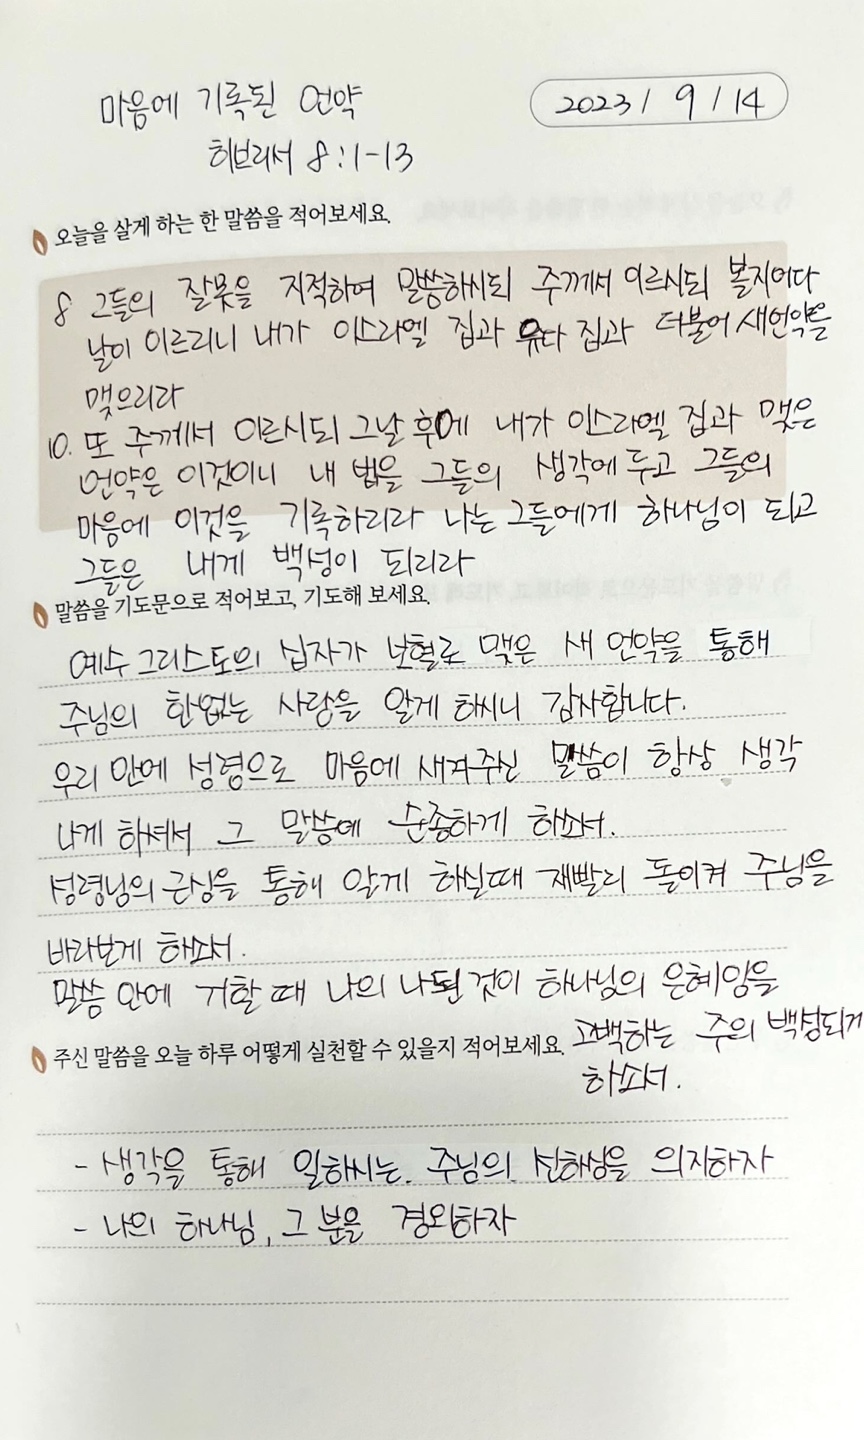 마음에 기록된 언약
2023 / 9 / 14
히브리서 8 : 1-13
오늘을 살게 하는 한 말씀을 적어보세요.
8 그들의 잘못을 지적하여 말씀하시되 주께서 이르시되 볼지어다
날이 이르리니 내가 이스라엘 집과 유다 집과 더불어 새언약을
맺으리라
10. 또 주께서 이르시되 그날 후에 내가 이스라엘 집과 맺은
언약은 이것이니 내 법을 그들의 생각에 두고 그들의
마음에 이것을 기록하리라 나는 그들에게 하나님이 되고
그들은 내게 백성이 되리라
말씀을 기도문으로 적어보고, 기도해 보세요.
예수 그리스도의 십자가 보혈로 맺은 새 언약을 통해
주님의 한없는 사랑을 알게 하시니 감사합니다.
우리 안에 성령으로 마음에 새겨주신 말씀이 항상 생각
나게 하셔서 그 말씀에 순종하게 하소서.
성령님의 근심을 통해 알게 하실때 재빨리 돌이켜 주님을
바라보게 하소서.
말씀 안에 거할 때 나의 나된 것이 하나님의 은혜임을
고백하는 주의 백성되게
하소서.
주신 말씀을 오늘 하루 어떻게 실천할 수 있을지 적어보세요.
- 생각을 통해 일하시는. 주님의 신해상을 의지하자
- 나의 하나님, 그 분을 경외하자